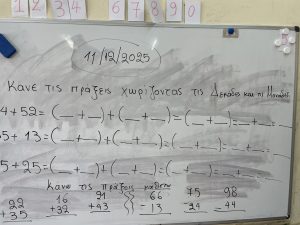 1 2 3 4 6 7 8 9 0
11/12/2025
Κανε τις πράξεις χωρίζοντας τις Δεκάδες και τις Μονάδες
4+52=(__+__)+(__+__)=(__+__)=__+__=
5+13=(__+__)+(__+__)=(__+__)=__+__=
5+25=(__+__)+(__+__)=(__+__)=__+__=
Κανω τις πράξεις κάθετα
22 16 21 66 75 98
+35 +32 +43 -13 -24 -44